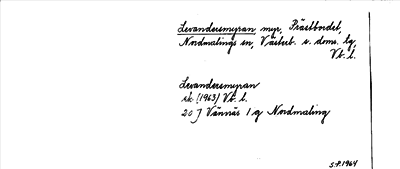 Levandersmyran myr, Prästbordet,
Nordmalings sn, Västerb. s. doms. lg,
Vb. l.
Levandersmyran
ek (1963) Vb. l.
20 J Vännäs 1 g Nordmaling
S.P. 1964